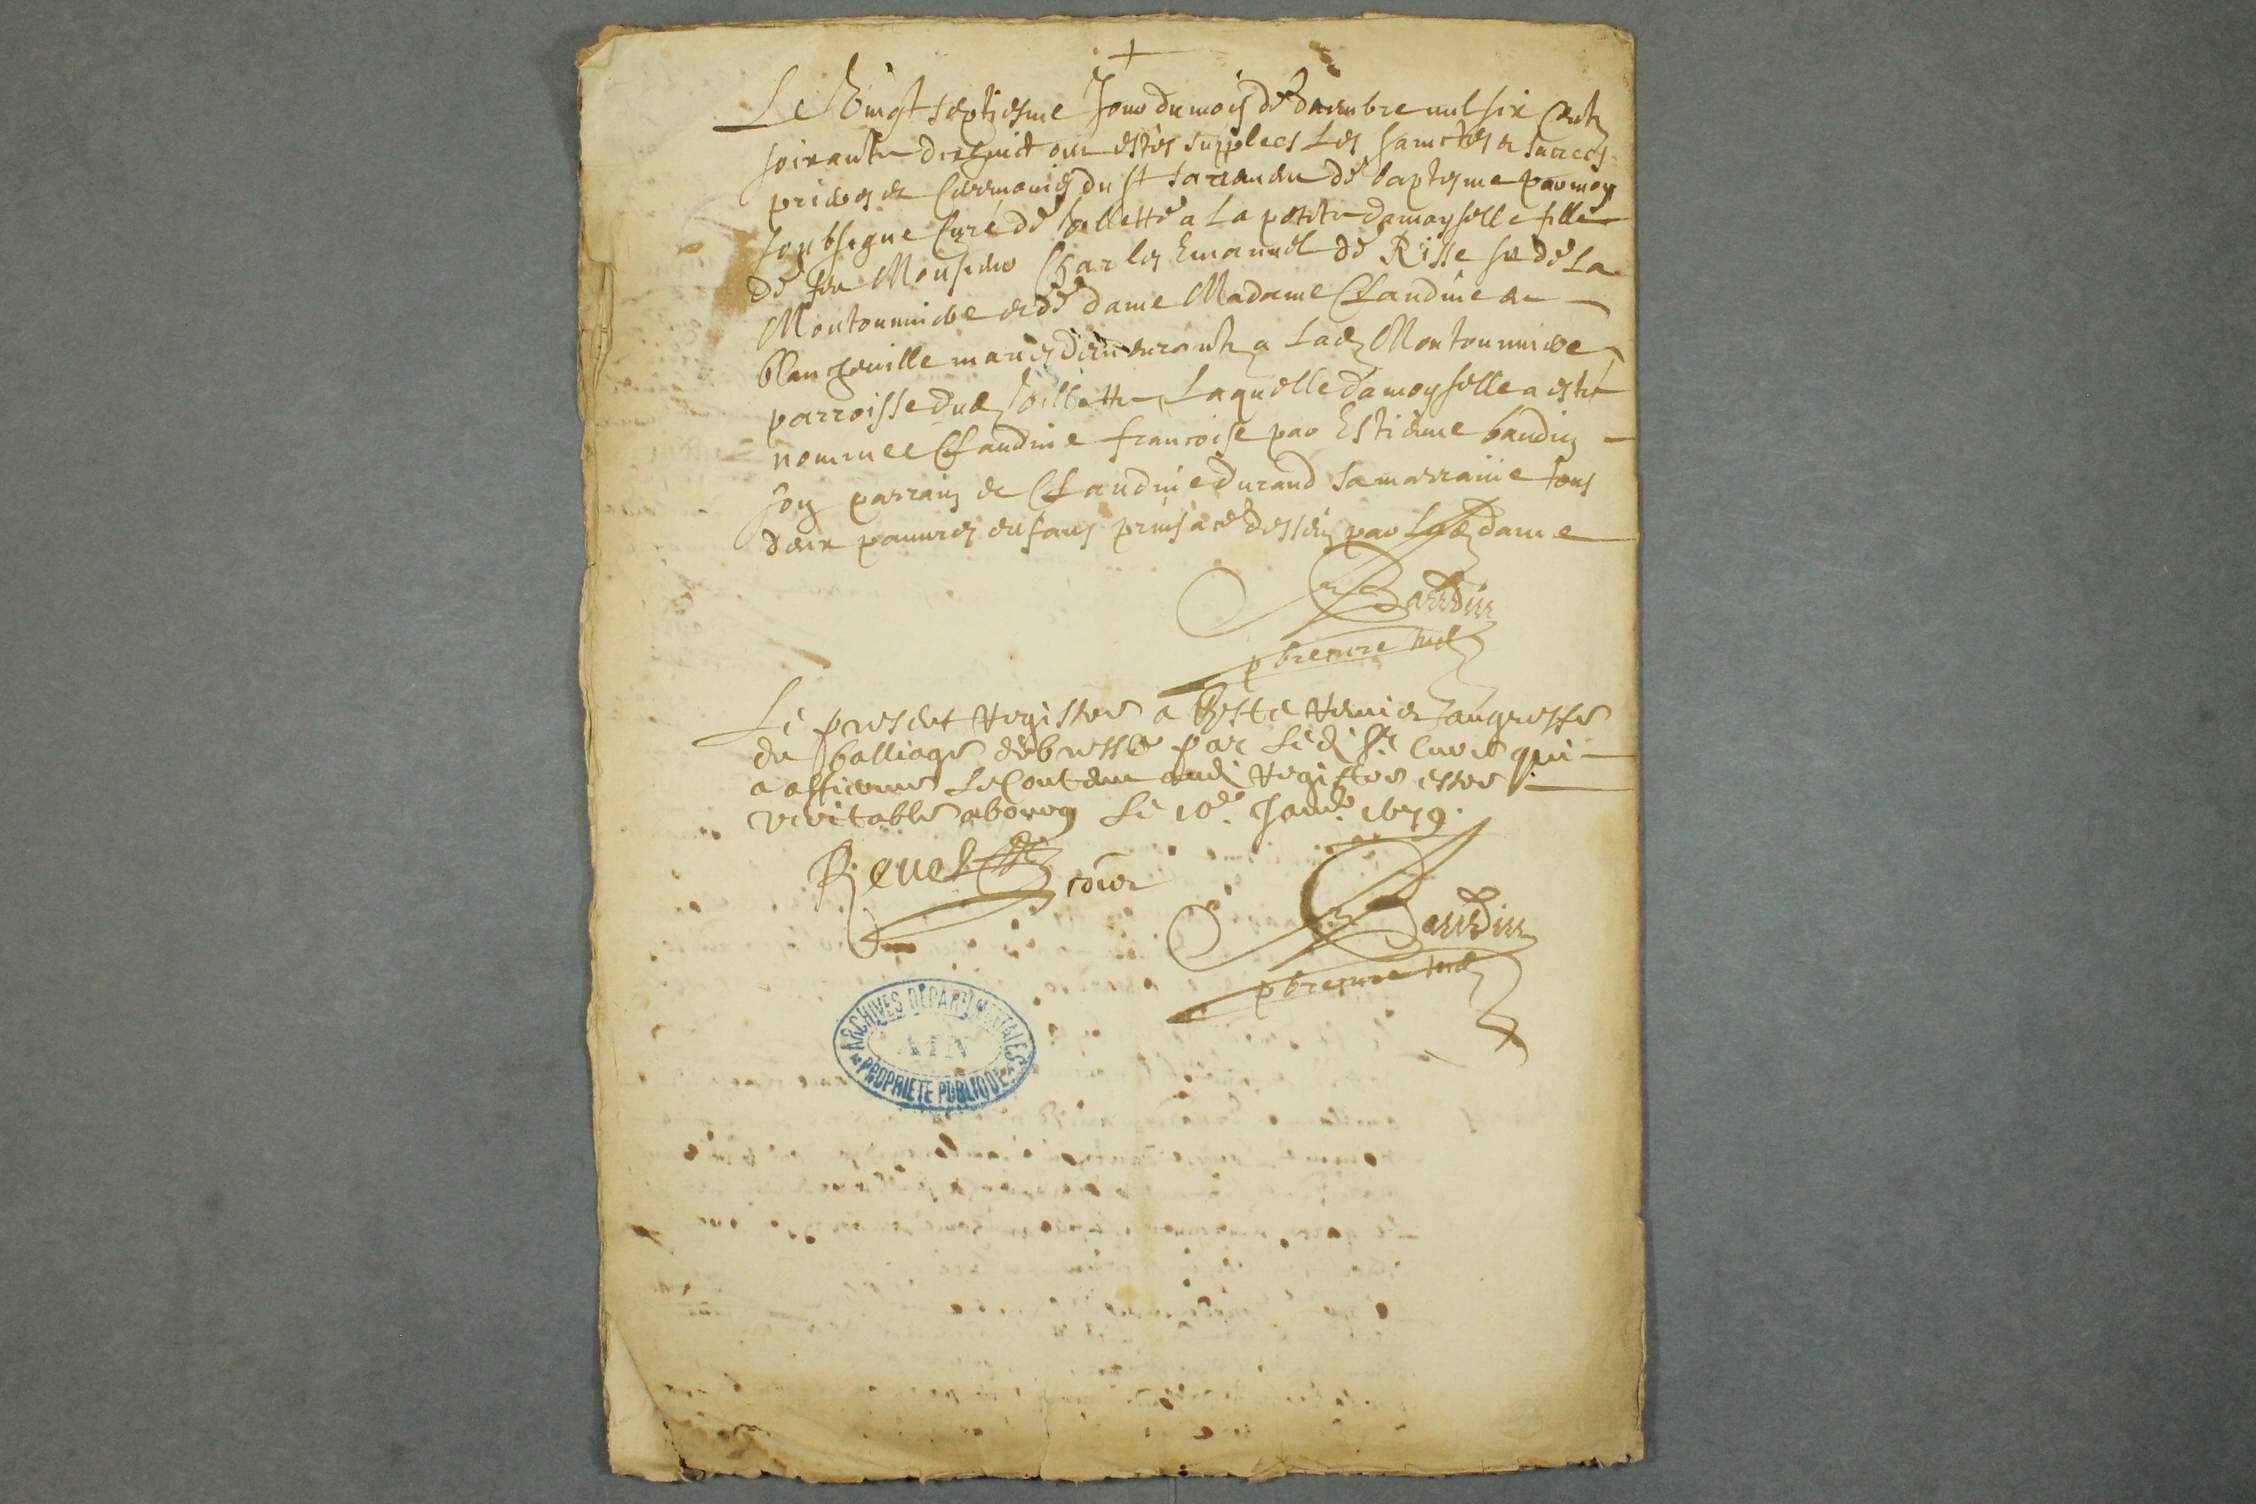 Le Vingt septiesme Jour du mois de decembre mil six cents
soixante dixhuict ont estés supplees Les sainctes et sacrees
prieres et Ceremonies du st sacrement de baptesme par moy
soubsigne Curé de foillette a La petite damoyselle fille
de feu Monsieur Charles Emanuel de Risse sr de La
Montonniere et de dame Madame Claudine de
blancheville mariés demeurants a Lade Montonniere
parroisse dude foillette, Laquelle damoyselle a esté
nommee Claudine francoise par Estienne baudin
son parrain et Claudine Durand sa marraine tous
deux pauures enfans prins a ce dessein par Lade dame
Baudin
pbre cure susd
Le present Registre a Esté Remis au greffe
du balliage de bresse par Ledi Sr Curé qui
a affirmé Le Contenu audi Registre estre
veritable a bourg Le 10e Janver 1679.
Reuel comis
Baudin
pbre cure susd
ARCHIVES DÉPARTEMENTALES
AIN
PROPRIÉTÉ PUBLIQUE